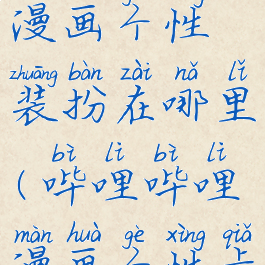 漫画个性
zhuāng bàn zài nǎ lǐ
装扮在哪里
bì lì bì lì
(哔哩哔哩
màn huà gè xìng qiǎ
漫画个性